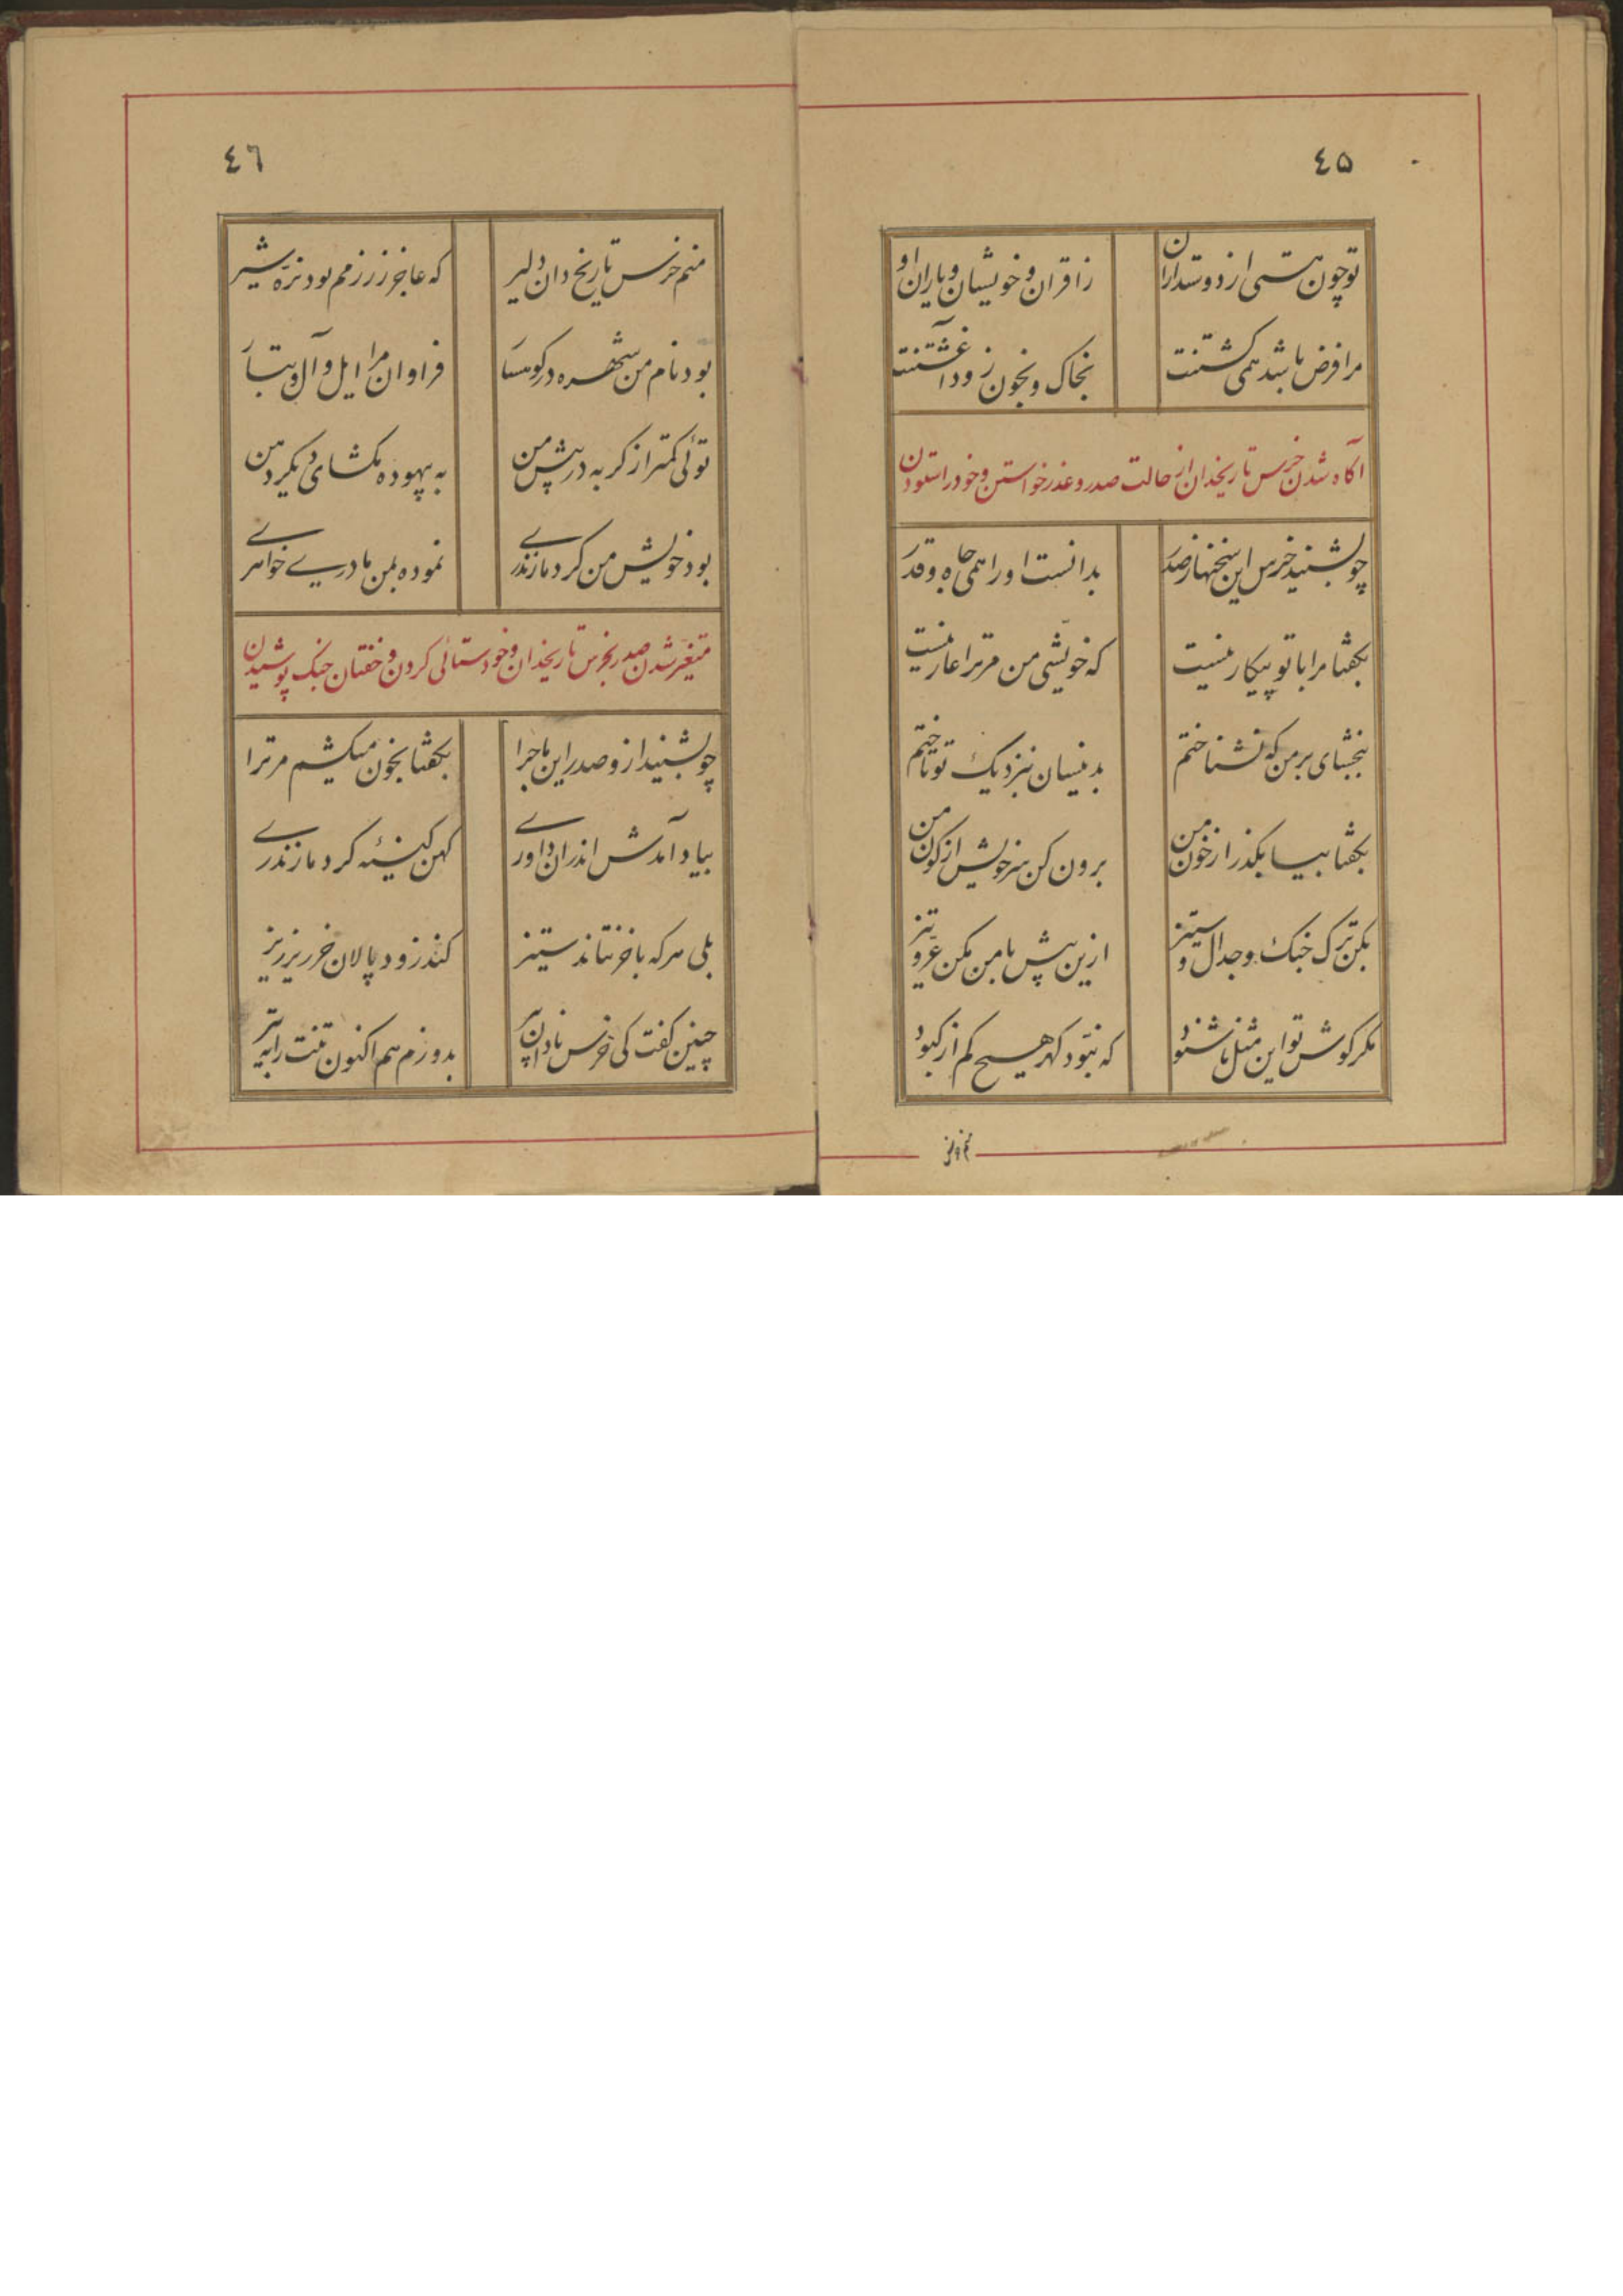 ٤٥
تو چون هستی از دوستداران
ز اقران و خویشان و یاران او
مرا فرض باشد همی کشتنت
بخاک و بخون زود آغشتنت
آکاه شدن خرس تاریخدان از حالت صدر و عذر خواستن و خود را ستودن
چو بشنید خرس این سخنها ز صدر
بدانست او را همی جاه و قدر
بکفتا مرا با تو پیکار نیست
که خویشی من مر ترا عار نیست
ببخشای بر من که نشناختم
بدینسان بنزدیک تو تاختم
بکفتا بیا بکذر از خون من
برون کن سر خویش از کون من
بکن ترک جنک و جدال و ستیز
ازین بیش با من مکن عرّ و تیز
مکر کوش تو این مثل ناشنود
که نبود کهر هیچ کم از کبود
٤٦
منم خرس تاریخ دان دلیر
که عاجز ز رزمم بود نرّه شیر
بود نام من شهره در کوهسار
فراوان مرا ایل و آل و تبار
توئی کمتر از کربه در پیش من
به بیهوده مکشای دیکر دهن
بود خویش من کرد مازندری
نموده بمن مادری خواهری
متغیّر شدن صدر بخرس تاریخدان و خودستائی کردن و خفتان جنک پوشیدن
چو بشنید ازو صدر این ماجرا
بکفتا بخون میکشم مر ترا
بیاد آمدش اندران داوری
کهن کینهٔ کرد مازندری
بلی هر که با خر نتاند ستیز
کند زود پالان خر ریز ریز
چنین کفت کی خرس نادان پیر
بدوزم هم اکنون تنت را به تیر